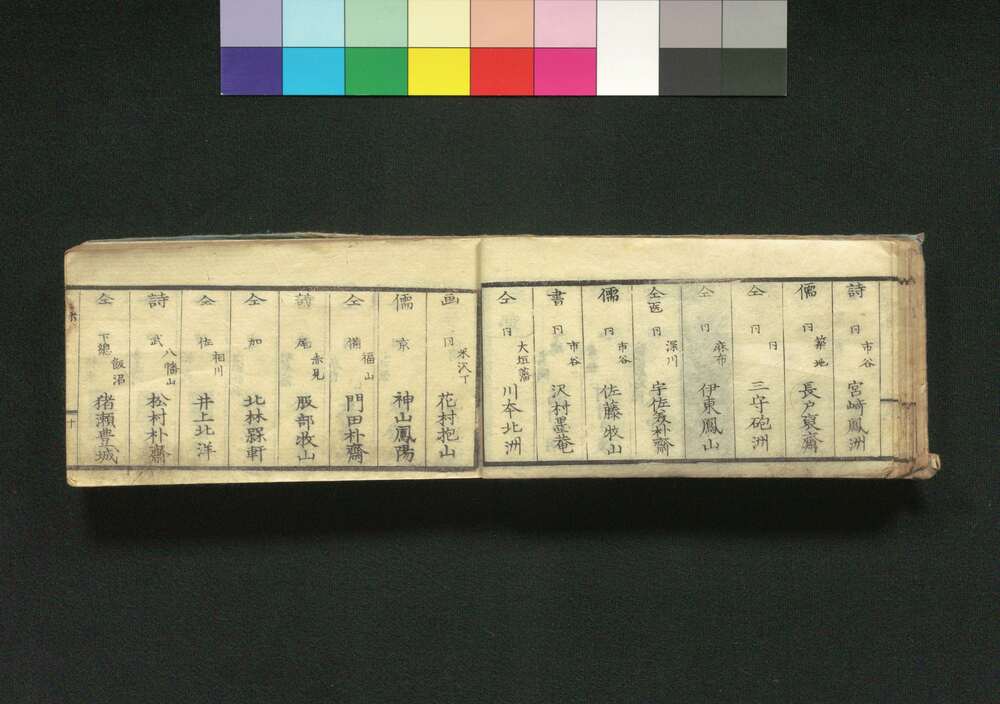 詩 冃 市谷 宮崎鳳洲
儒 冃 築地 長戸裒齋
仝 冃 日 三守砲洲
仝 冃 麻布 伊東鳳山
仝医 冃 深川 宇佐美朴齋
儒 冃 市谷 佐藤牧山
書 冃 市谷 沢村墨菴
仝 冃 大垣藩 川本北洲
画 冃 米沢丁 花村抱山
儒 京 神山鳳陽
仝 備 福山 門田朴齋
詩 尾 赤見 服部牧山
仝 加 北林軒
仝 佐 相川 井上北洋
詩 武 八幡山 松村朴齋
仝 下總 飯沼 猪瀬豊城
十